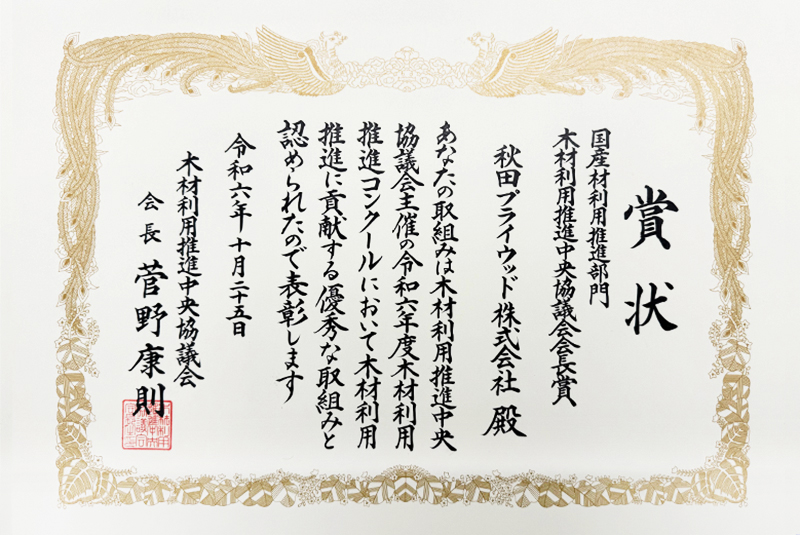 賞状
国産材利用推進部門
木材利用推進中央協議会会長賞
秋田プライウッド株式会社 殿
あなたの取組みは木材利用推進中央
協議会主催の令和六年度木材利用
推進コンクールにおいて木材利用
推進に貢献する優秀な取組みと
認められたので表彰します
令和六年十月二十五日
木材利用推進中央協議会
会長 菅野康則